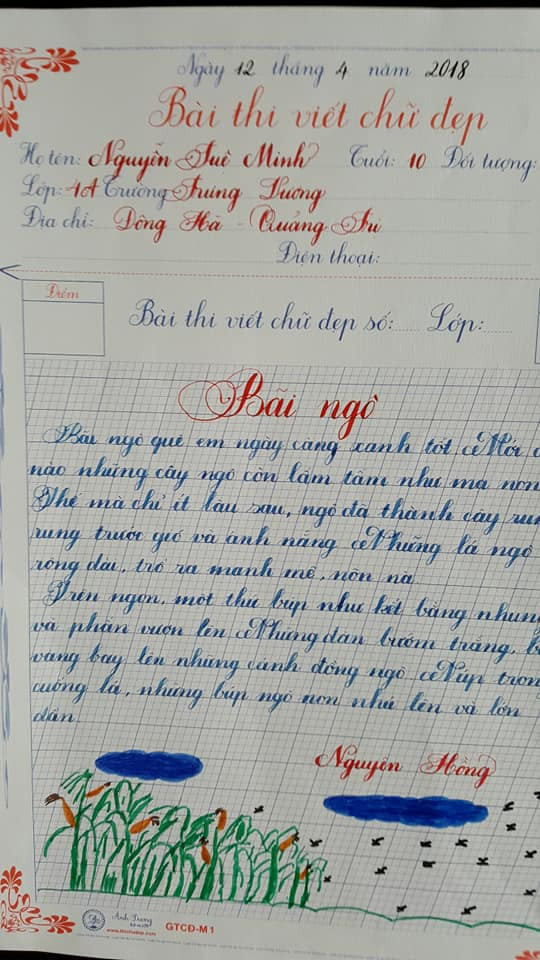 Ngày 12 tháng 4 năm 2018
Bài thi viết chữ đẹp
Họ tên: Nguyễn Tuệ Minh Tuổi: 10 Đối tượng:
Lớp: 4A Trường Trưng Vương
Địa chỉ: Đông Hà - Quảng Trị
Điện thoại:
Điểm
Bài thi viết chữ đẹp số: ...... Lớp: ......
Bãi ngô
Bãi ngô quê em ngày càng xanh tốt. Mới
nào những cây ngô còn lấm tấm như mạ non
Thế mà chỉ ít lâu sau, ngô đã thành cây
rung trước gió và ánh nắng. Những lá ngô
rộng dài, trổ ra mạnh mẽ, nõn nà.
Trên ngọn, một thứ búp như kết bằng nhung
và phấn vươn lên. Những đàn bướm trắng,
vàng bay lên những cánh đồng ngô. Núp
cuống lá, những búp ngô non nhú lên và lớn
dần.
Nguyên Hồng
Ánh Dương
GTCĐ-M1